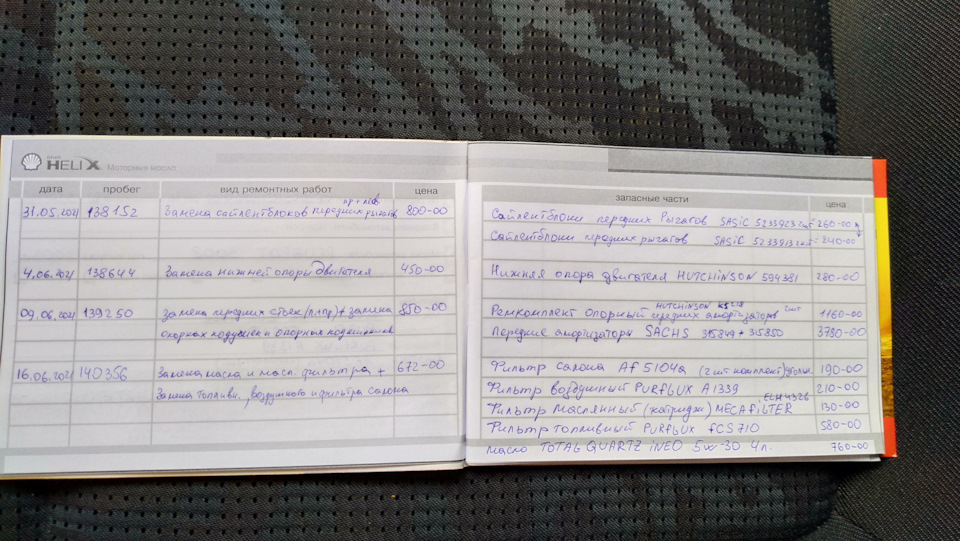 HELIX Моторные масла
дата пробег вид ремонтных работ цена
пр + лев
31.05.2021 138152 Замена сайлентблоков передних рычагов 800-00
4.06.2021 138644 Замена нижней опоры двигателя 450-00
09.06.2021 139250 Замена передних стоек (л+пр) + замена 850-00
опорных подушек и опорных подшипников
16.06.2021 140356 Замена масла и масл. фильтра + 672-00
Замена топливн., воздушного и фильтра салона
запасные части цена
Сайлентблоки передних рычагов SASiC 5233923 = 260-00
Сайлентблоки передних рычагов SASiC 5233913 = 240-00
Нижняя опора двигателя HUTCHiNSON 594381 280-00
HUTCHiNSON KS 2шт
Ремкомплект опорный передних амортизаторов 1160-00
Передние амортизаторы SACHS 315849 + 315850 3780-00
Фильтр салона Af 5104a (2 шт комплект) угольн. 190-00
Фильтр воздушный PURfLUX A1339 210-00
ELH4326
Фильтр маслянный (катридж) MECAfiLTER 130-00
Фильтр топливный PURfLUX fCS710 580-00
Масло TOTAL QUARTZ iNEO 5w-30 4л. 760-00